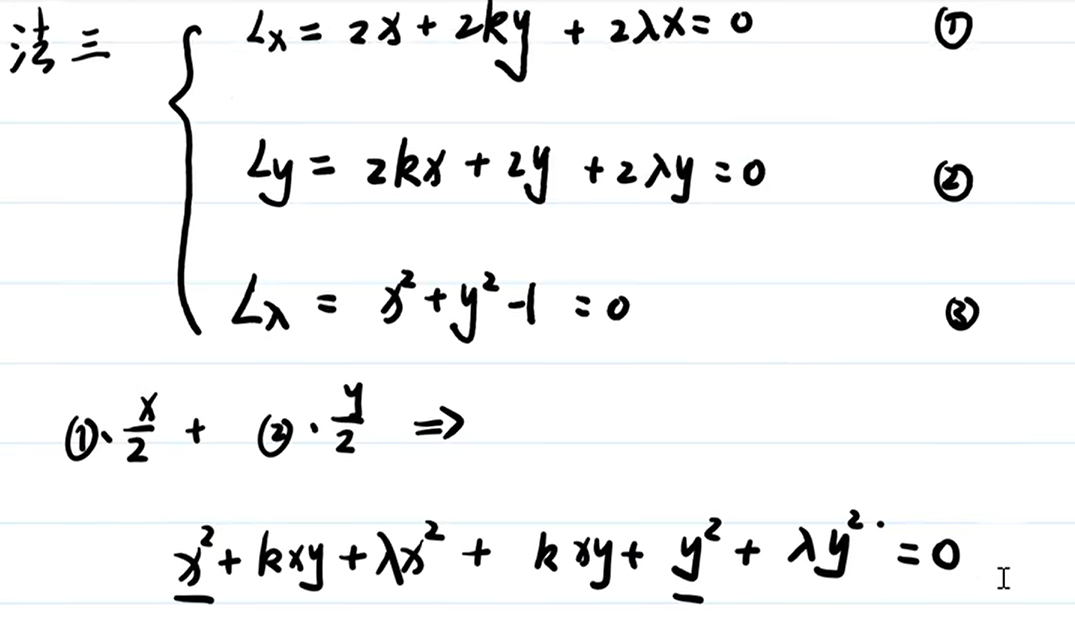 法三 Lx = 2x + 2ky + 2λx = 0 ①
Ly = 2kx + 2y + 2λy = 0 ②
Lλ = x² + y² - 1 = 0 ③
①·x/2 + ②·y/2 ⇒
x² + kxy + λx² + kxy + y² + λy² = 0